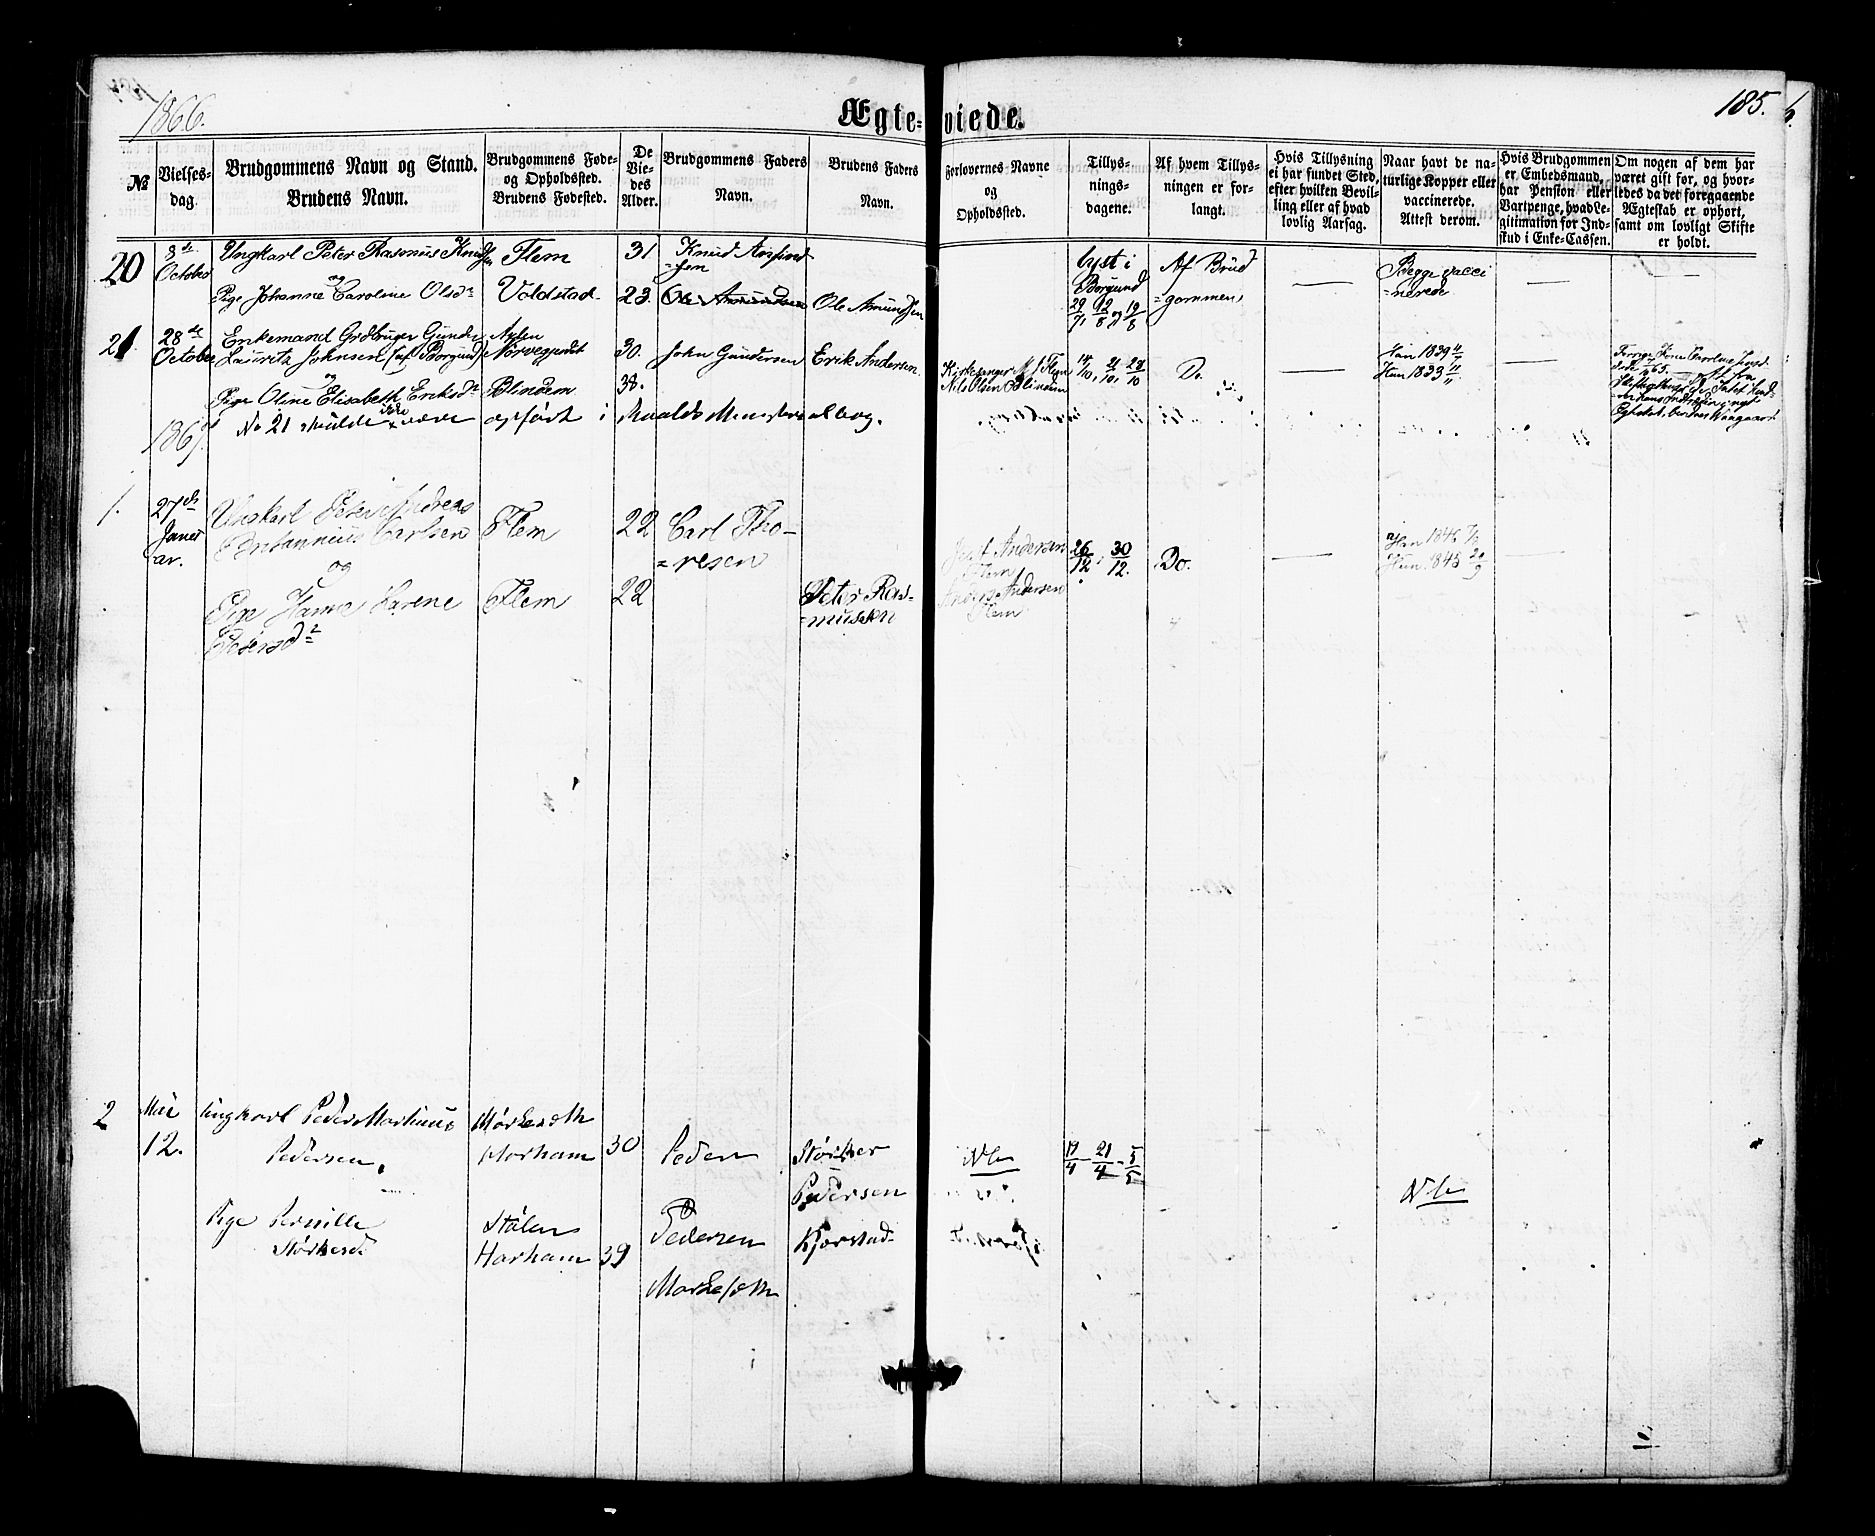 1866.
Ægte-viede.
185.
№
Vielses-
dag.
Brudgommens Navn og Stand.
Brudens Navn.
Brudgommens Føde-
og Opholdssted.
Brudens Fødested.
De
Vie-
des
Alder.
Brudgommens Faders
Navn.
Brudens Faders
Navn.
Forlovernes Navne
og
Opholdssted.
Tillys-
nings-
dagene.
Af hvem Tillys-
ningen er for-
langt.
Hvis Tillysning
ei har fundet Sted,
efter hvilken Bevil-
ling eller af hvad
lovlig Aarsag.
Naar havt de na-
turlige Kopper eller
vaccinerede.
Attest derom.
Hvis Brudgommen
er Embedsmand,
har Pension eller
Vartpenge, hvad Le-
gitimation for Ind-
skud i Enke-Cassen.
Om nogen af dem har
været gift før, og hvor-
ledes da det foregaaende
Ægteskab er ophørt,
samt om lovligt Skifte
er holdt.
20
8de
October
Ungkarl Peter Rasmus Knudsen
og
Pige Johanne Caroline Olsdr
Flem
Voldstad
31
23.
Knud
=sen
Ole Amundsen
Ole Amundsen
lyst i
Borgund
29/7, 12/8 og 19/8
Af Brud
=gommen,
Begge vacci
=nerede
21
28de
October
Enkemand Grdbruger Gunder
Lauritz Johnsen (af Borgund)
og
Pige Oline Elisabeth Eriksdr
Nørvegjerdet
Blindem
30.
38.
John Gundersen
Erik Andersen
Kirkesanger Flem
Nils Olsen Blindem
14/10, 21/10, 28/10
Do.
Han 1839
Hun 1833
No 21 skulde ikke være opført i Maaleds Ministerialbog.
1867.
1.
27de
Janu
ar.
Ungkarl Peter Andreas
Britannius Carlsen
og
Pige Hanna Karene
Pedersdr
Flem
Flem
22
22
Carl Tho-
=resen
Peter Ras-
=mussen
Andersen
Flem
Anders Andersen
Flem
26/12, 30/12.
Do.
Han 184
Hun 1845
2
Mai
12.
Ungkarl Peder Martinus
Pedersen,
Pige Pernille
Størkersd.
Harham
Stålen
Harham
30
39
Peder
Pedersen
Størker
Pedersen
Kjørstad
19/4 - 21/4 - 5/5